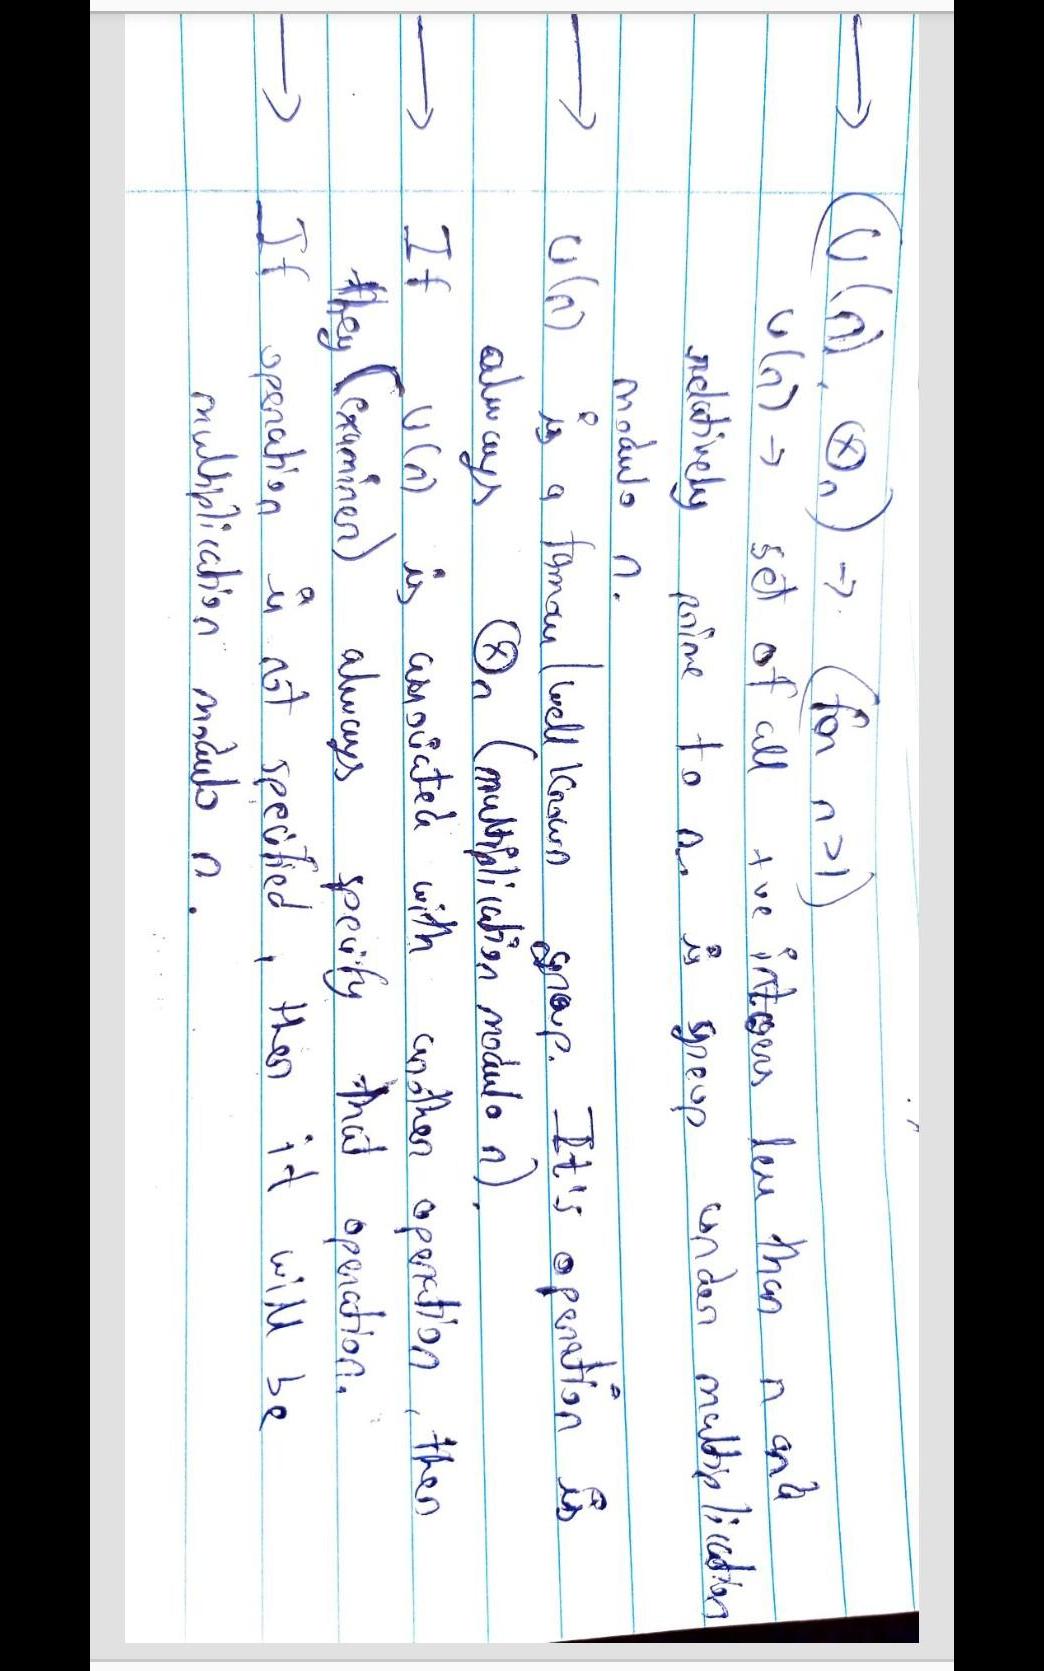 → (U(n), ⊗n) → (for n>1)
U(n) → set of all +ve integers less than n and
relatively prime to n, is group under multiplication
modulo n.
→ U(n) is a famous/well known group. It's operation is
always ⊗n (multiplication modulo n).
→ If U(n) is associated with another operation, then
they (examiner) always specify that operation.
→ If operation is not specified, then it will be
multiplication modulo n.